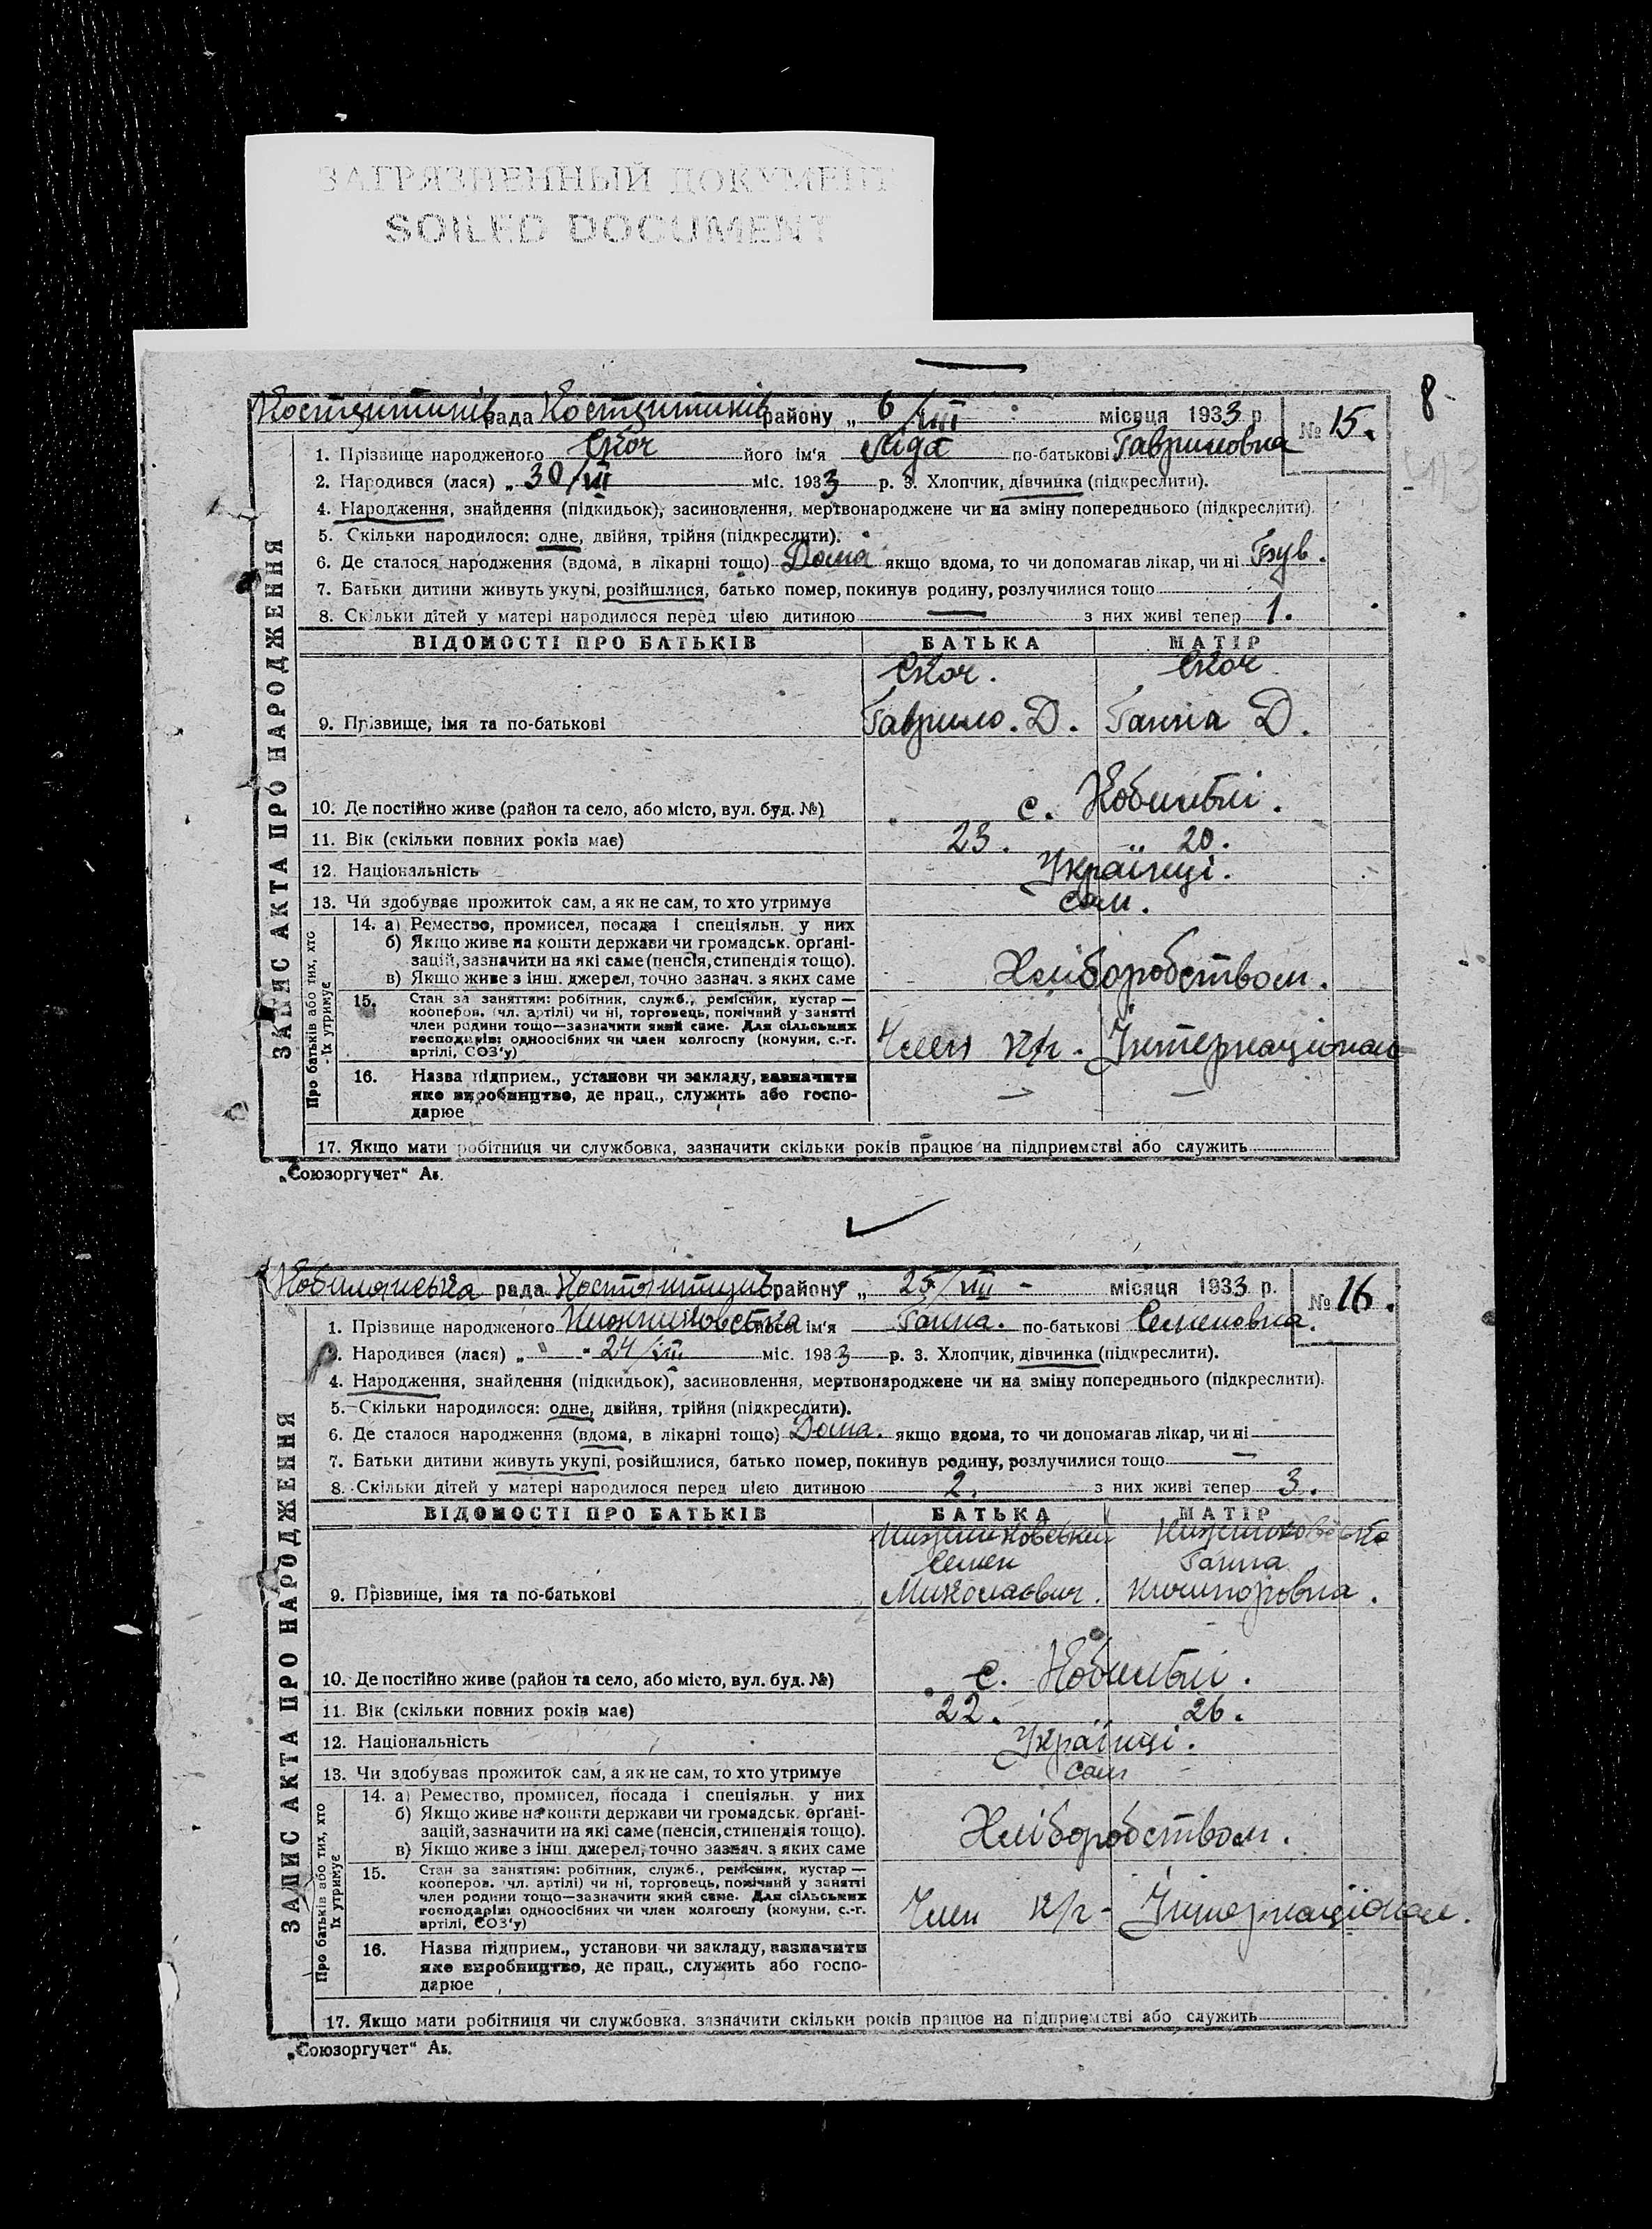 ЗАГРЯЗНЕННЫЙ ДОКУМЕНТ
SOILED DOCUMENT
8
рада района „ 6/VIII місяця 1933 р. № 15.
ЗАПИС АКТА ПРО НАРОДЖЕННЯ
1. Прізвище народженого Скоч його ім'я Ліда по-батькові Гавриловна
2. Народився (лася) „ 30/VII міс. 1933 р. 3. Хлопчик, дівчинка (підкреслити).
4. Народження, знайдення (підкидьок), засиновлення, мертвонароджене чи на зміну попереднього (підкреслити).
5. Скільки народилося: одне, двійня, трійня (підкреслити).
6. Де сталося народження (вдома, в лікарні тощо) Дома якщо вдома, то чи допомагав лікар, чи ні був.
7. Батьки дитини живуть укупі, розійшлися, батько помер, покинув родину, розлучилися тощо
8. Скільки дітей у матері народилося перед цією дитиною — з них живі тепер 1.
ВІДОМОСТІ ПРО БАТЬКІВ БАТЬКА МАТІР
Скоч. Скоч
9. Прізвище, імя та по-батькові Гаврило. Д. Ганна Д.
10. Де постійно живе (район та село, або місто, вул. буд. №) с. Кобильні.
11. Вік (скільки повних років має) 23. 20.
12. Національність Українці.
13. Чи здобуває прожиток сам, а як не сам, то хто утримує сам.
Про батьків або тих, хто їх утримує
14. а) Ремество, промисел, посада і спеціяльн. у них
б) Якщо живе на кошти держави чи громадськ. органі-
зацій, зазначити на які саме (пенсія, стипендія тощо).
в) Якщо живе з інш. джерел, точно зазнач. з яких саме Хліборобством.
15. Стан за заняттям: робітник, служб., ремісник, кустар —
кооперов. (чл. артілі) чи ні, торговець, помічний у занятті
член родини тощо—зазначити який саме. Для сільських
господарів: одноосібних чи член колгоспу (комуни, с.-г.
артілі, СОЗ'у) Член к/г. Інтернаціонал
16. Назва підприєм., установи чи закладу, зазначити
яке виробництво, де прац., служить або госпо-
дарює — —
17. Якщо мати робітниця чи службовка, зазначити скільки років працює на підприємстві або служить
„Союзоргучет“ Ав.
рада району „ 25/VIII - місяця 1933 р. № 16.
ЗАПИС АКТА ПРО НАРОДЖЕННЯ
1. Прізвище народженого його ім'я Ганна. по-батькові Семеновна.
2. Народився (лася) „ 24/VIII міс. 1933 р. 3. Хлопчик, дівчинка (підкреслити).
4. Народження, знайдення (підкидьок), засиновлення, мертвонароджене чи на зміну попереднього (підкреслити).
5. Скільки народилося: одне, двійня, трійня (підкреслити).
6. Де сталося народження (вдома, в лікарні тощо) Дома. якщо вдома, то чи допомагав лікар, чи ні —
7. Батьки дитини живуть укупі, розійшлися, батько помер, покинув родину, розлучилися тощо
8. Скільки дітей у матері народилося перед цією дитиною 2. з них живі тепер 3.
ВІДОМОСТІ ПРО БАТЬКІВ БАТЬКА МАТІР
Семен Ганна
9. Прізвище, імя та по-батькові Миколаєвич. Ничипоровна.
10. Де постійно живе (район та село, або місто, вул. буд. №) с. Кобильні.
11. Вік (скільки повних років має) 22. 26.
12. Національність Українці.
13. Чи здобуває прожиток сам, а як не сам, то хто утримує сам
Про батьків або тих, хто їх утримує
14. а) Ремество, промисел, посада і спеціяльн. у них
б) Якщо живе на кошти держави чи громадськ. органі-
зацій, зазначити на які саме (пенсія, стипендія тощо).
в) Якщо живе з інш. джерел, точно зазнач. з яких саме Хліборобством.
15. Стан за заняттям: робітник, служб., ремісник, кустар —
кооперов. (чл. артілі) чи ні, торговець, помічний у занятті
член родини тощо—зазначити який саме. Для сільських
господарів: одноосібних чи член колгоспу (комуни, с.-г.
артілі, СОЗ'у) Член к/г - Інтернаціонал.
16. Назва підприєм., установи чи закладу, зазначити
яке виробництво, де прац., служить або госпо-
дарює
17. Якщо мати робітниця чи службовка, зазначити скільки років працює на підприємстві або служить
„Союзоргучет“ Ав.